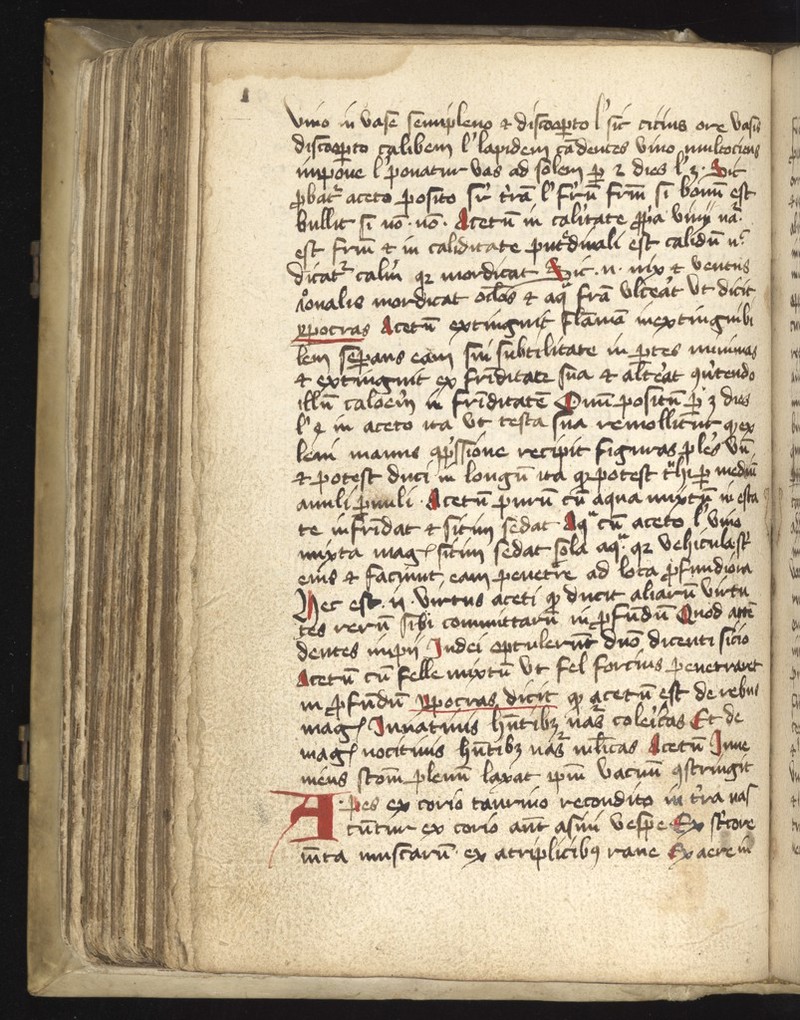 1
vino in vase semipleno et discooperto l' sic citius ore vasis
discooperto calibem l' lapidem cadentes vino multociens
impone l' ponatur vas ad solem per 2 dies l' 3. Sic
probatur aceto posito super terram l' ferrum frm si bonum est
bullit si non non. Acetum in calitate propria vini nam
est frm et in caliditate putredinali est calidum
dicatur calm quia mordicat Sic .n. nix et ventus
mordicat oculos et aqua frigida ulcerat ut dicit
ypocras Acetum extinguit flamam inextinguibi
lem separans eam sui subtilitate in partes minimas
et extinguit ex friditate sua et alterat convertendo
illum calorem in friditatem Ovum positum per 3 dies
l' 4 in aceto ita ut testa sua remollitur
manus compressione recipit figuras plures
et potest duci in longum ita quod potest trahi per medium
anuli parvuli. Acetum purum cum aqua mixtum in esta
te infridat et sitim sedat. Aqua cum aceto l' vino
mixta magis sitim sedat sola aqua quia vehicula sunt
eius et faciunt eam penetrare ad loca profundiora
Hec est .n. virtus aceti quod ducit aliarum virtu
tes rerum sibi commixtarum in profundum Quod atten
dentes impii Iudei optulerunt domino dicenti sicio
Acetum cum felle mixtum ut fel forcius penetraret
in profundum ypocras dicit quod acetum est de rebus
magis Iuvativis habentibus naturas colericas Et de
magis nocitivis habentibus naturas Acetum Inve
niens stomachum plenum laxat ipsum vacuum constringit
Apes ex corio taurino recondito in terra nas
cuntur ex corio autem asini vespe Ex stercore
muscarum ex atriplicibus rane Ex aere in